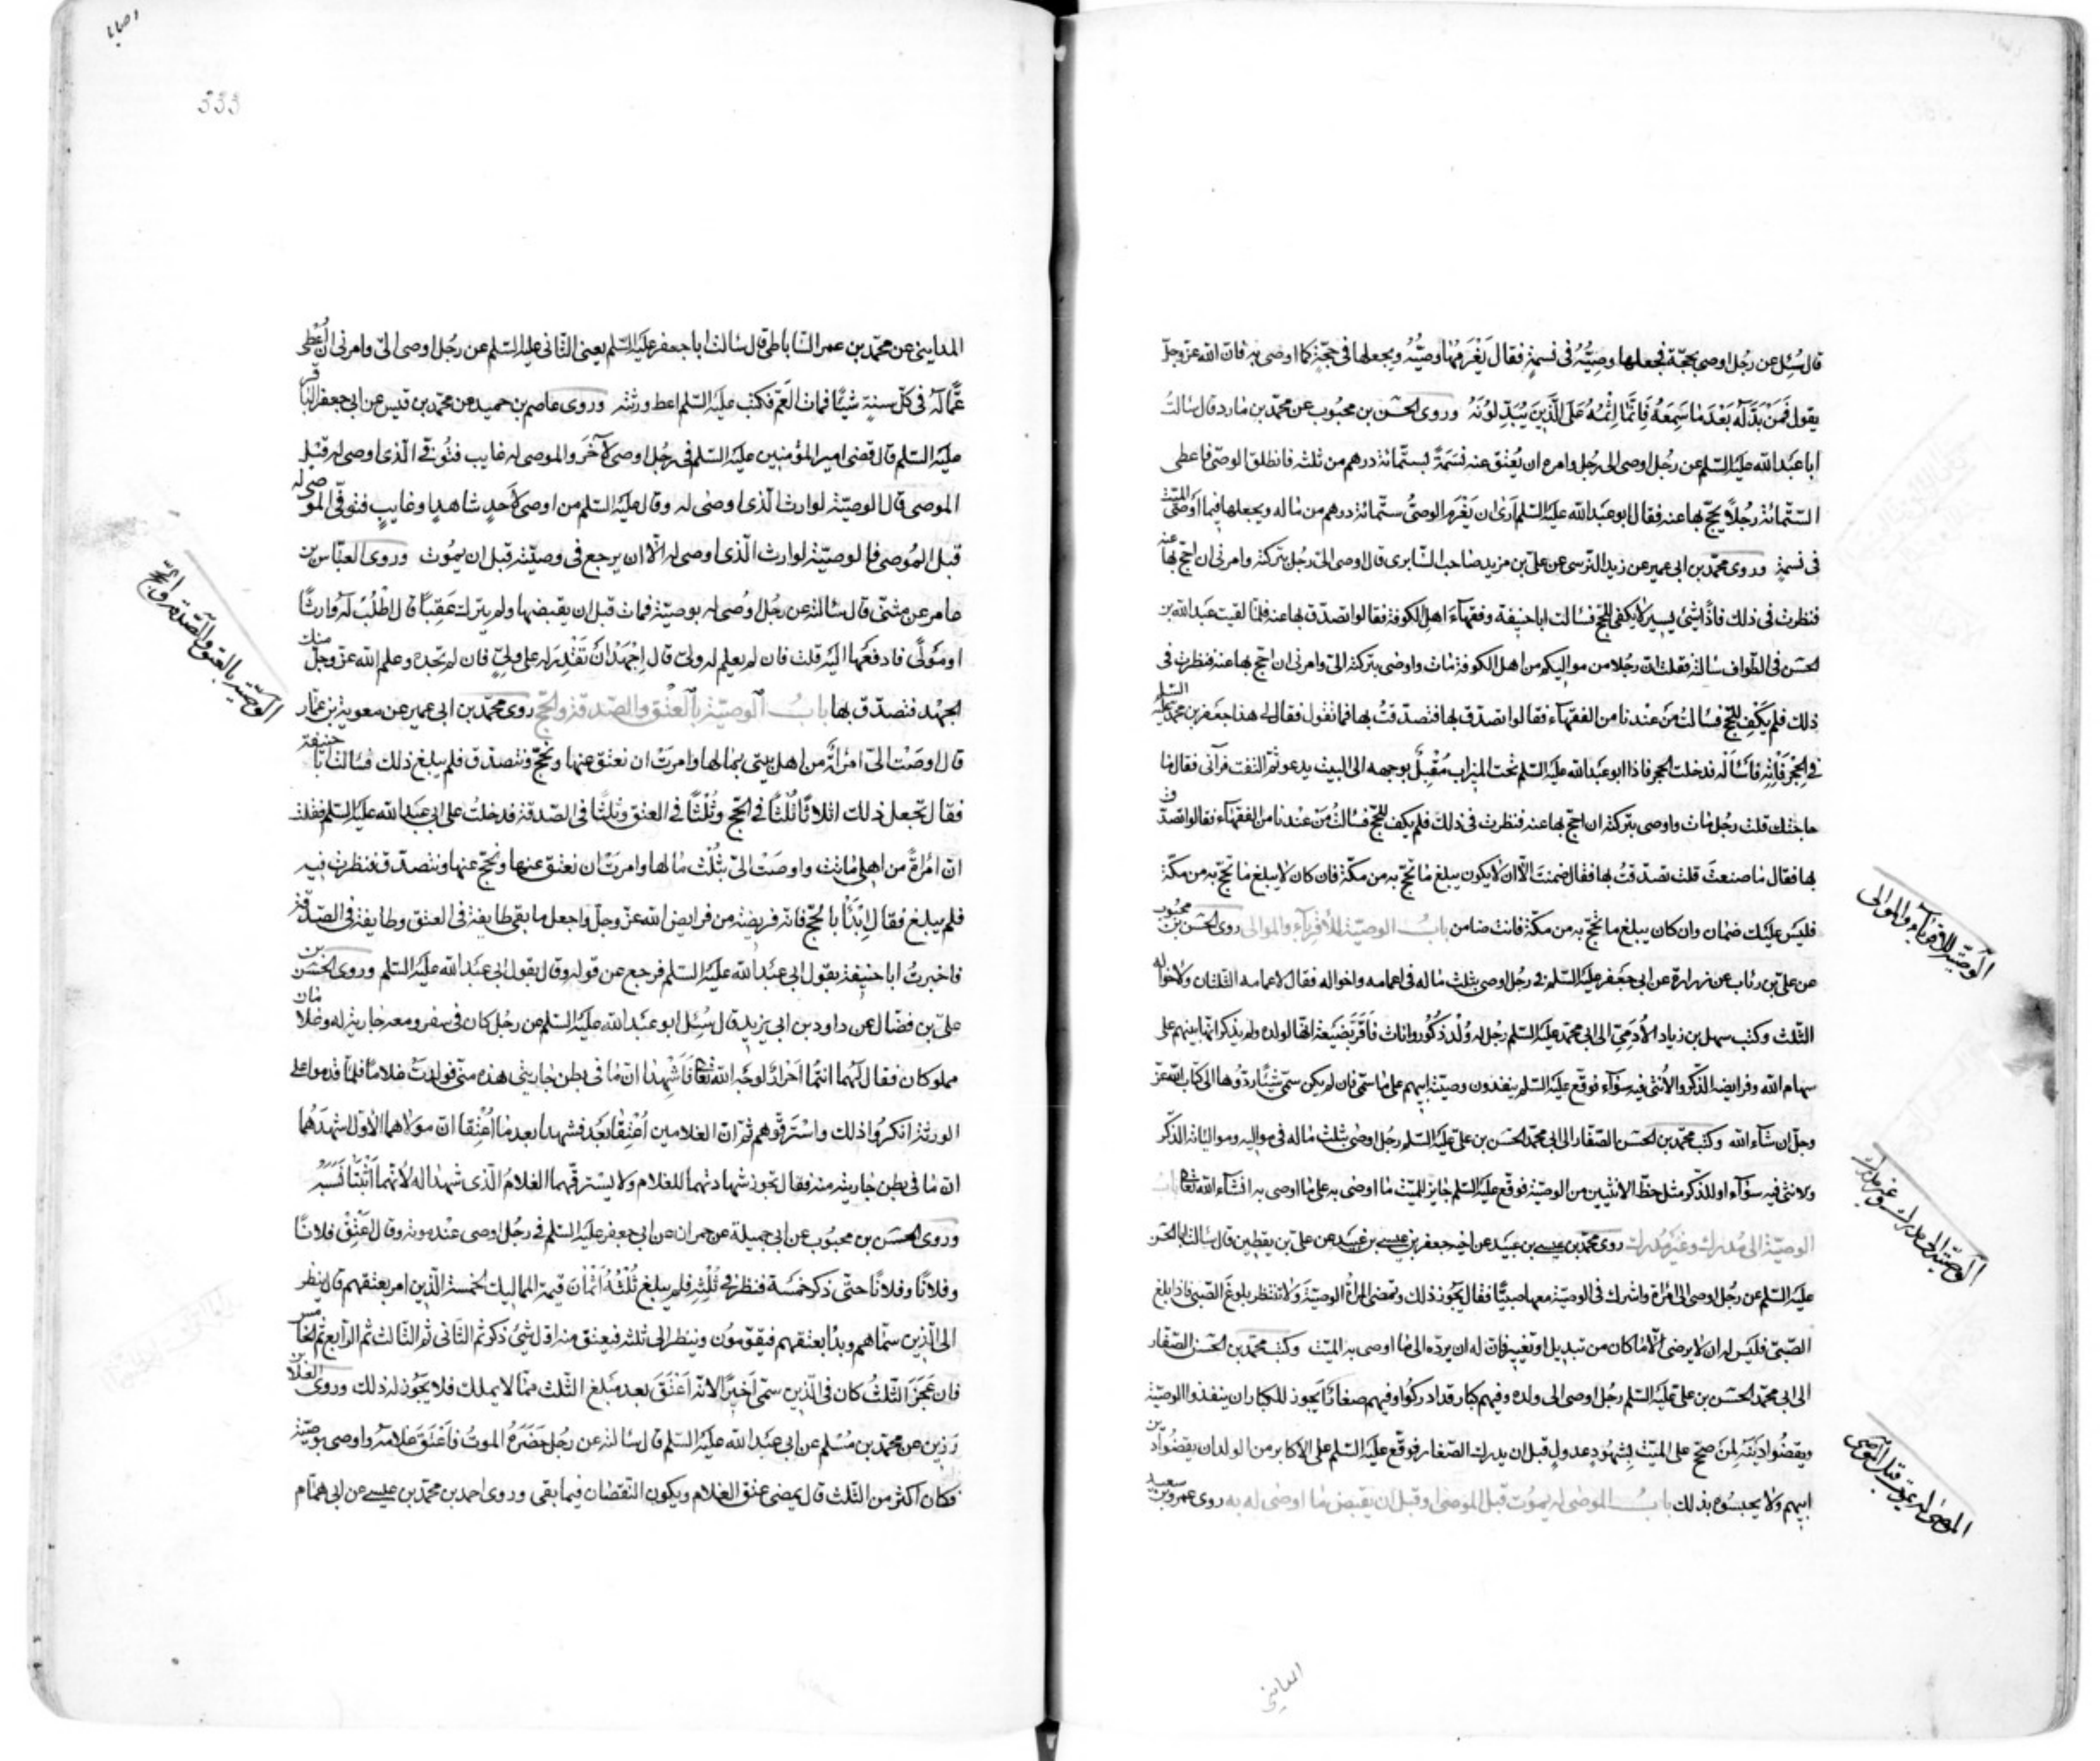 قال سُئِل عن رجُل اوصى بحجّة فجعلها وصيُّهُ فى نسمةٍ فقال يَغْرَمُها وصيُّهُ ويجعلها فى حجّةٍ كما اوصى به فانّ الله عزّ وجلّ
يقول فَمَنْ بَدَّلَهُ بَعْدَ مَا سَمِعَهُ فَإِنَّمَا إِثْمُهُ عَلَى الَّذِينَ يُبَدِّلُونَهُ وروى الحسَن بن محبُوب عن محمّد بن مارد قال سالتُ
ابا عَبدالله عليَه السّلم عن رجُل اوصى الى رجُل وامره ان يُعْتق عنه نَسَمَةً بستّمائة درهم من ثلثه فانطلق الوصىّ فاعطى
السّتّمائة رجُلاً يحجّ بها عنه فقال ابو عبَدالله عليَه السّلم ارَىٰ ان يَغْرَم الوصىُّ ستّمائة درهم من ماله ويجعلها فيما اَوْصَى الميّت
فى نسمةٍ وروى محمّد بن ابى عمير عن زيد النرسى عن علىّ بن مزيد صاحب السّابرى قال اوصى الىّ رجُل بتركته وامرنى ان احجّ بها عنه
فنظرت فى ذلك فاذا شَئ يسير لا يكفى للحجّ فسالت ابا حنيفة وفقهآء اهل الكوفة فقالوا تصدّق بها عنه فلمّا لقيت عبَد الله بن
الحسَن فى الطّواف سالته فقلت انّ رجُلا من مواليكم من اهل الكوفة مات واوصى بتركته الىّ وامرنى ان احجّ بها عنه فنظرت فى
ذلك فلم يَكْفِ للحجّ فسَالتُ مَن عندنا من الفقهآء فقالوا تصدّق بها فتصدّقتُ بها فما تقول فقال لى هذا جعفر بن محمّد عليه السّلم
فى الحِجْرِ فَاْتِهِ فَاسْأَلْه فدخلت الحجر فاذا ابو عبَدالله عليَه السّلم تحت الميزاب مُقْبِلٌ بوجهه الى البيت يدعو ثمّ التفت فرآنى فقال ما
حاجتك قلت رجُل مات واوصى بتركته ان احجّ بها عنه فنظرت فى ذلك فلم يكف للحجّ فسَالتُ مَنْ عندنا من الفقهآء فقالوا تصدّق
بها فقال ما صنعتَ قلت تصدّقتُ بها فقال ضمنتَ الّا ان لا يكون يبلغ ما تحجّ به من مكّة فان كان لا يبلغ ما تحجّ به من مكّة
فليَس عليَك ضمان وان كان يبلغ ما تحجّ به من مكّة فانت ضامن بابُ الوصيّة للأقربآء والموالى روى الحسَن بن محبوب
عن علىّ بن رئاب عن زرارة عن ابى جعَفر عليَه السّلم فى رجُل اوصى بثلث ماله فى اعمامه واخواله فقال لاعمامه الثلثان ولاخواله
الثّلث وكتب سهل بن زياد الأدَمىّ الى ابى محمّد عليَه السّلم رجُل له وُلْد ذكُور واناث فَاَقَرَّ بضَيْعة انّها لولده ولم يذكر انّها بينهم على
سهام الله وفرايضه الذّكر والاُنثى فيه سوآء فوقّع عليَه السّلم ينفذون وصيّة ابيهم على ما سمّى فان لم يكن سمّى شيَئاً ردّوها الى كتاب الله عزّ
وجلّ ان شآء الله وكتب محمّد بن الحسَن الصّفار الى ابى محمّد الحسَن بن علىّ عليَه السّلم رجُل اوصى بثلث ماله فى مواليه ومولياته الذّكر
ولانثى فيه سوآء او للذّكر مثل حظّ الانثيين من الوصيّة فوقّع عليَه السّلم جايز للميّت ما اوصى به على ما اوصى به انشآء الله تعالى باب
الوصيّة الى مُدرك وغير مُدرك روى محمّد بن عيسى بن عبيَد عن اخيه جعفر بن عيسى بن عبيَد عن علىّ بن يقطين قال سالت ابا الحسن
عليَه السّلم عن رجُل اوصى الى امْرأة واشرك فى الوصيّة معها صبيّا فقال يجوز ذلك وتمضى المرأة الوصيّة ولا تنتظر بلوغ الصّبى فاذا بلغ
الصّبىّ فليَس له ان لا يرضى الّا ما كان من تبديل او تغيير فانّ له ان يردّه الى ما اوصى به الميّت وكتب محمّد بن الحسَن الصّفار
الى ابى محمّد الحسَن بن علىّ عليَه السّلم رجُل اوصى الى ولده وفيهم كبار قد ادركوا وفيهم صغار اَيجوز للكبار ان ينفذوا الوصيّة
ويقضُوا دَيْنَه لِمَن صحّح على الميّت بشهُودٍ عدولٍ قبل ان يدرك الصّغار فوقّع عليَه السّلم على الاكابر من الولد ان يقضُوا دين
ابيهم ولا يحبسُوه بذلك بابُ الموصٰى له يموت قبل الموصى او قبل ان يقبض ما اوصى له به روى عمرو بن سعيد
الوصيّة للاقربآء والموالى
الوصيّة الى مدرك وغير مدرك
الموصٰى له يموت قبل الموصى
المداينى
وصايا
333
المداينى عن محمّد بن عمر السّاباطى قال سالت ابا جعفر عليَه السّلم يعنى الثّانى عليَه السّلم عن رجُل اوصى الىّ وامرنى ان اُعْطى
عَمّاً لَه فى كلّ سنةٍ شيَئاً فمات الَعمّ فكتب عليَه السّلم اعط ورثته وروى عاصم بن حميد عن محمّد بن قيس عن ابى جعفر الباقر
عليَه السّلم قال قضى امير المؤمنين عليَه السّلم فى رجُل اوصى لآخَر والموصى له غايب فتُوفّى الّذى اوصى له قبْل
الموصى قال الوصيّة لوارث الّذى اوصٰى له وقال عليَه السّلم من اوصى لأحَدٍ شاهدٍ او غايبٍ فتوفّى الموصى له
قبل المُوصى فالوصيّة لوارث الّذى اوصى له الّا ان يرجع فى وصيّته قبل ان يمُوت وروى العبّاس بن
عامر عن مثنّى قال سالته عن رجُل اُوصى له بوصيّة فمات قبل ان يقبضها ولم يترك عَقِباً قال اُطْلُبْ لَه وارثاً
او مَوْلًى فادفعَها اليَه قلت فان لم يعلم له ولىّ قال اجْهَدْ اَنْ تَقْدِرَ له على ولىٍّ فان لم تجده وعلم الله عزّ وجلّ منك
الجهد فتصدّق بها بابُ الوصيّة بالْعتْق والصّدقة والحجّ روى محمّد بن ابى عمير عن معوية بن عمّار
قال اوصَتْ الىّ امْرأةٌ من اهل بيتى بمالها وامرتْ ان نعتق عنها ونحجّ ونتصدّق فلم يبلغ ذلك فسَالت ابا حنيفة
فقال تجعل ذلك اثلاثاً ثُلْثاً فى الحجّ وثُلْثاً فى العتق وثُلثاً فى الصّدقة فدخلتُ على ابى عبَدالله عليَه السّلم فقلت
انّ امْرأةً من اهلى ماتت واوصَتْ الىّ بثُلْث مالها وامرتْ ان نعتق عنها ونحجّ عنها ونتصدّق فنظرت فيه
فلم يبلغ فقال اِبْدَأْ بالحجّ فانّه فريضة من فرايض الله عزّ وجلّ واجعل ما بقى طايفة فى العتق وطايفة فى الصّدقة
فاخبرتُ ابا حنيفة بقول ابى عبَدالله عليَه السّلم فرجع عن قوله وقال بقول ابى عبَدالله عليَه السّلم وروى الحسَن بن
علىّ بن فضّال عن داود بن ابى يزيد قال سُئِل ابو عبَدالله عليَه السّلم عن رجُل كان فى سفر ومعه جارية له وغلامان
مملوكان فقال لهُما انتما احْرار لوجْه الله تعالى فَاَشْهِدا انّ ما فى بطن جاريتى هذه منّى فولدتْ غلاماً فلمّا قدموا على
الورثة انكرُوا ذلك واسْتَرقّوهم ثمّ انّ الغلامين اُعْتِقا بَعْد فشهدا بعد ما اُعْتِقا انّ مولاهما الاوّل اشهدَهُما
انّ ما فى بطن جاريته منه فقال تجوز شهادتهما للغلام ولا يسْترقّهما الغلامُ الّذى شهدا له لأنّهما اَثْبَتا نَسَبَهُ
وروى الحسَن بن محبُوب عن ابى جميلة عن حمران عن ابى جعفر عليَه السّلم فى رجُل اوصى عنْد موته وقال اَعْتِقْ فلاناً
وفلاناً وفلاناً حتّى ذكر خمسَة فنظر فى ثُلْثِه فلم يبلغ ثُلْثُهُ اَثْمانَ قيمة المماليك الخمسة الّذين امر بعتقهم قال ينظر
الى الّذين سمّاهم وبدأ بعتقهم فيقوّمُون وينظر الى ثلثه فيعتق منه اوّل شئ ذكر ثم الثّانى ثم الثّالث ثم الرّابع ثم الخامس
فان عَجَزَ الثّلثُ كان فى الّذين سمّى اَخيراً لانّه اَعْتَقَ بعد مَبلغ الثّلث ممّا لا يملك فلا يجَوز له ذلك وروى العلا بن
رَزين عن محمّد بن مُسْلم عن ابى عبَدالله عليَه السّلم قال سالته عن رجُل حَضَرَهُ الموتُ فاَعْتَقَ غلامَه واوصى بوصيّة
فكان اكثر من الثّلث قال يمضى عتق الغلام ويكون النّقصان فيما بقى وروى احمد بن محمّد بن عيسى عن ابى همّام
الوصيّة بالعتق والصّدقة والحجّ